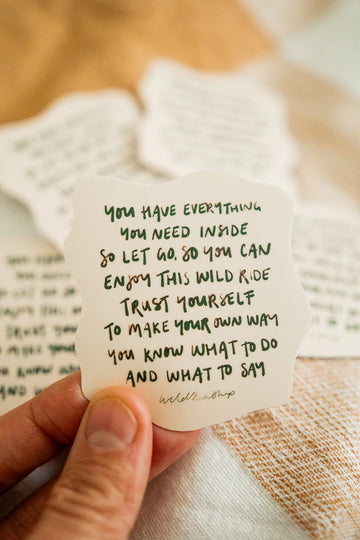 YOU HAVE EVERYTHING
YOU NEED INSIDE
SO LET GO, SO YOU CAN
ENJOY THIS WILD RIDE
TRUST YOURSELF
TO MAKE YOUR OWN WAY
YOU KNOW WHAT TO DO
AND WHAT TO SAY